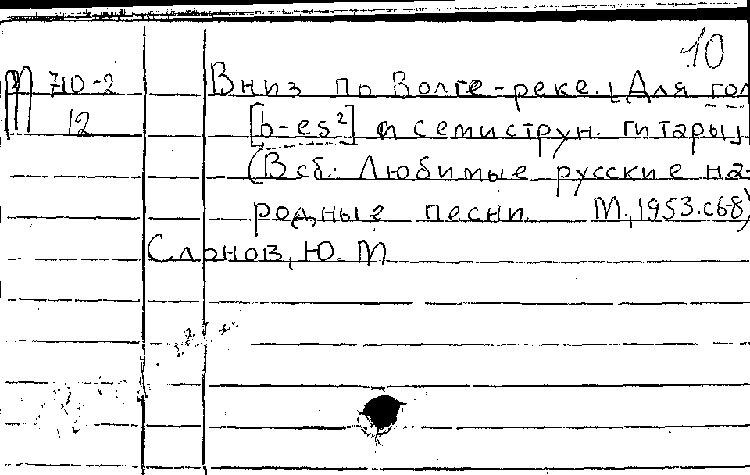 10
М 710-2 Вниз по Волге-реке. [Для гол
12 [b-es²] и семиструн. гитары]
(В сб.: Любимые русские на-
родные песни. М., 1953. с68)
Слонов, Ю. М